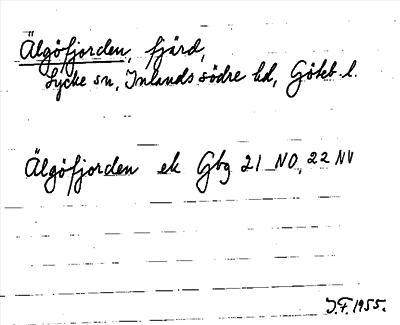 Älgöfjorden, fjärd,
Lycke sn, Inlands södre hd, Göteb. l.
Älgöfjorden ek Gbg 21 NO, 22 NV
J.F. 1955.